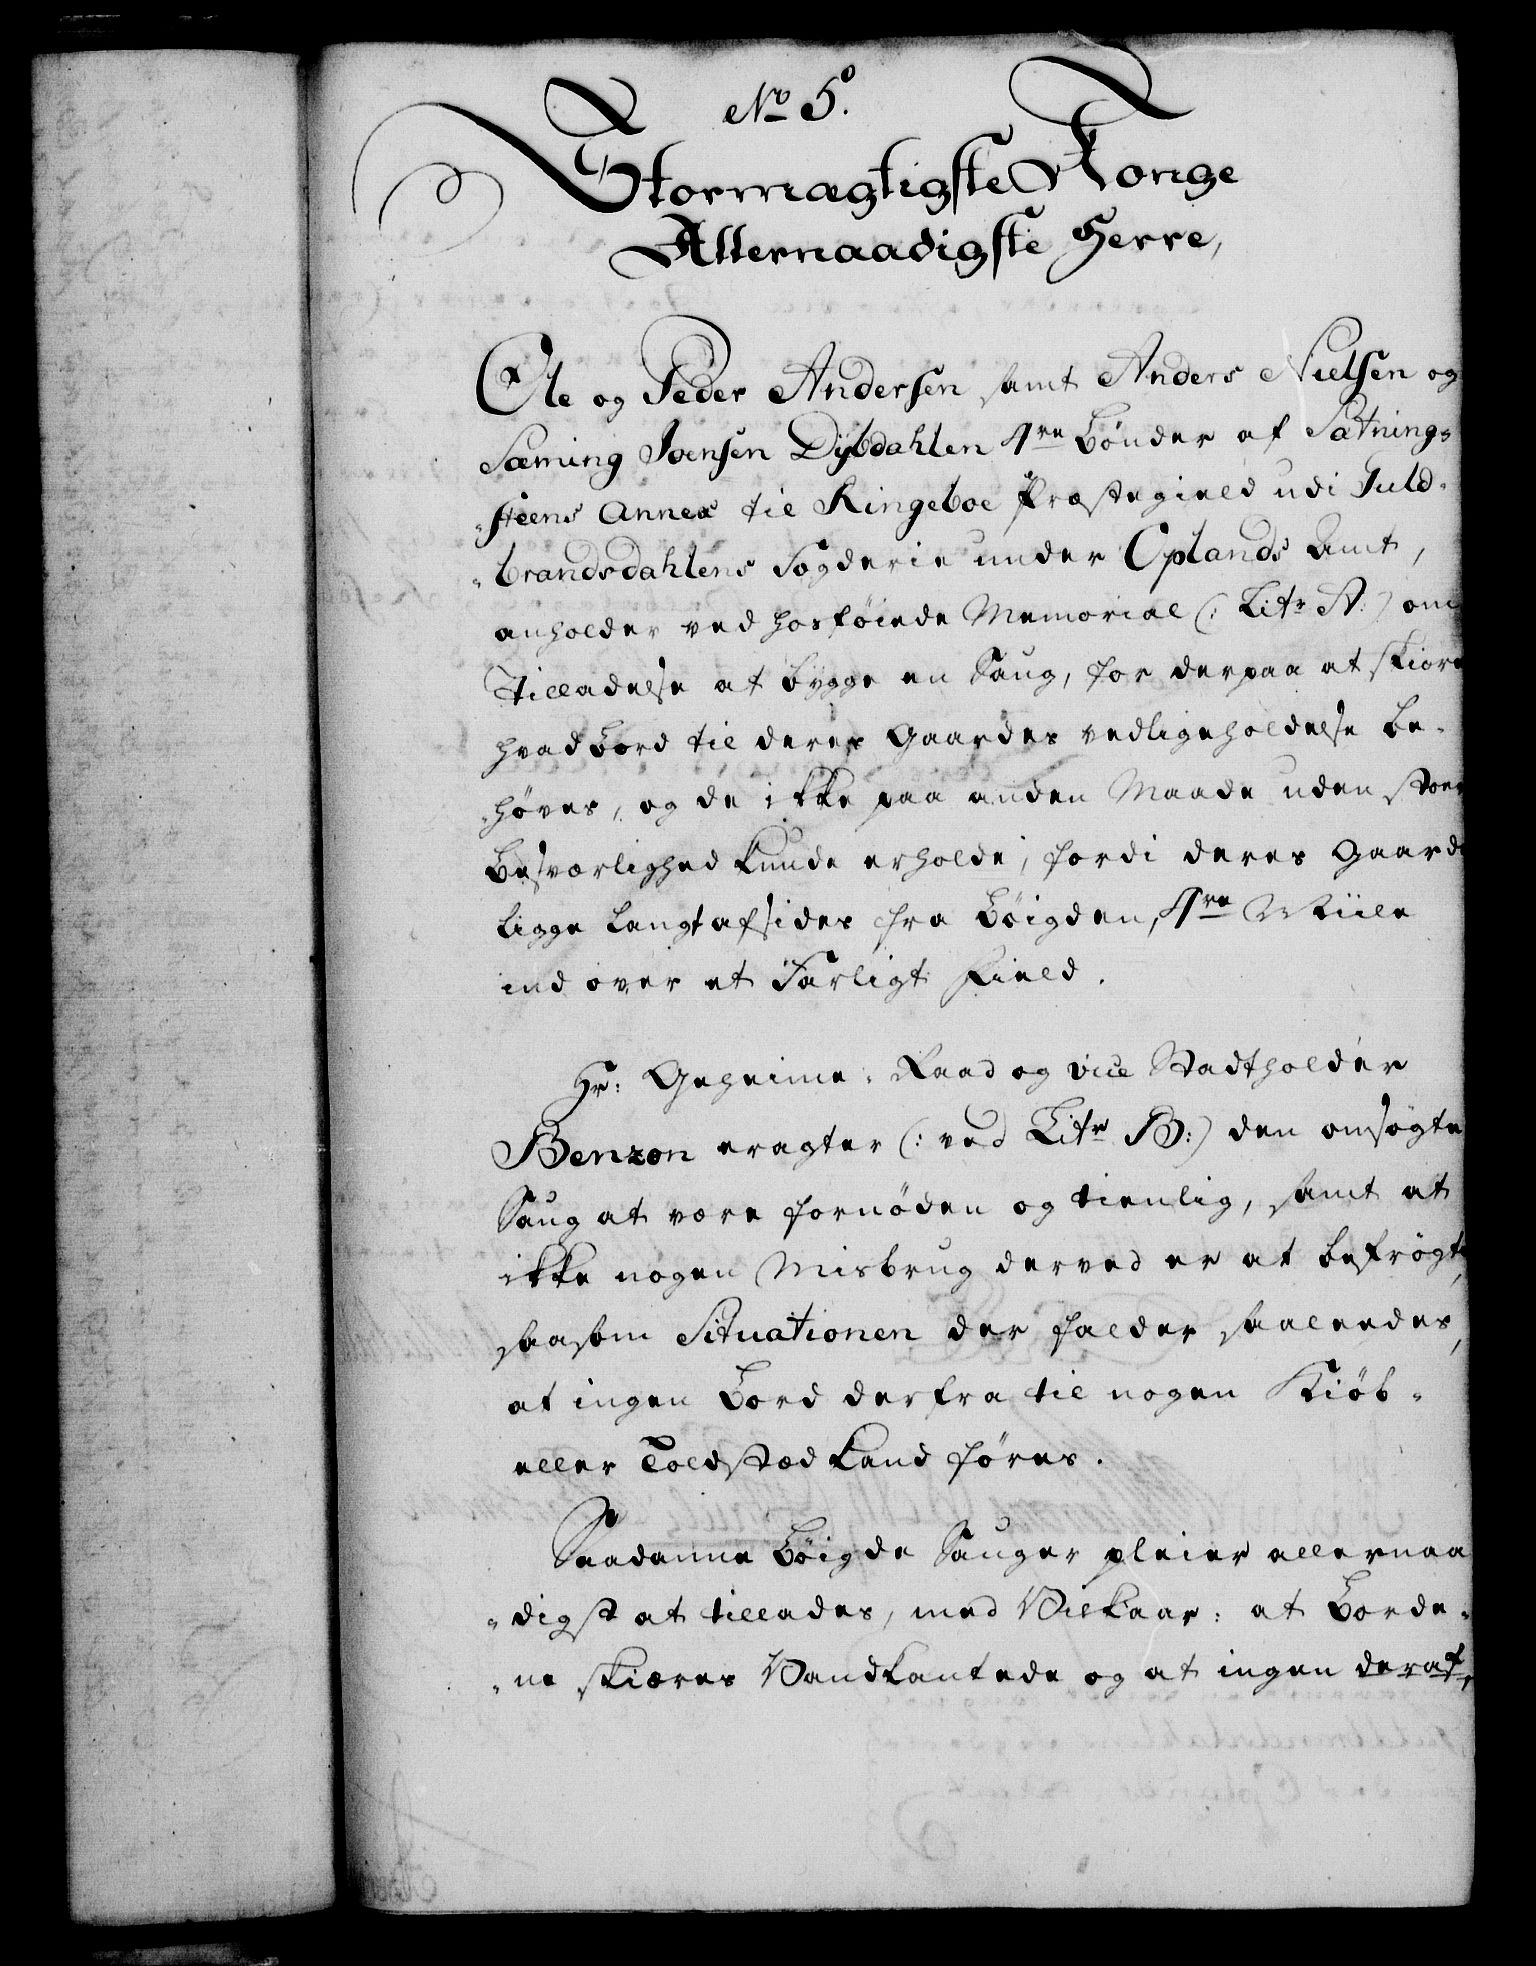 No 5.
Stormægtigste Konge
Allernaadigste Herre,
Ole og Peder Andersen samt Anders Nielsen og
Sæming Joensen Dybdahlen 4re Bønder af Sætnings-
-steens Annex til Ringeboe Præstegield udi Guld-
-brandsdahlens Fogderie under Oplands Amt,
anholder ved hosføiede Memorial (: Litr A:) om
Tilladelse at bygge en Saug, for derpaa at skiære
hvad Bord til deres Gaardes vedligeholdelse be-
-høves, og de ikke paa anden Maade uden stoer
Besværlighed kunde erholde, fordi deres Gaarde
ligge langt afsides fra Bøigden, 4re Miile
ind over et Farligt Field.
Hr: Geheime-Raad og vice Stadtholder
Benzon eragter (: ved Litr B:) den ansøgte
Saug at være fornøden og tienlig, samt at
ikke nogen Misbrug derved er at befrøgte,
saasom Situationen der falder saaleedes,
at ingen Bord derfra til nogen Kiøb-
eller Toldstæd kand føres.
Saadanne Bøigde Sauger pleier allernaa
-digst at tillades, med Vilkaar: at Borde-
-ne skiæres Vandkantede og at ingen deraf,